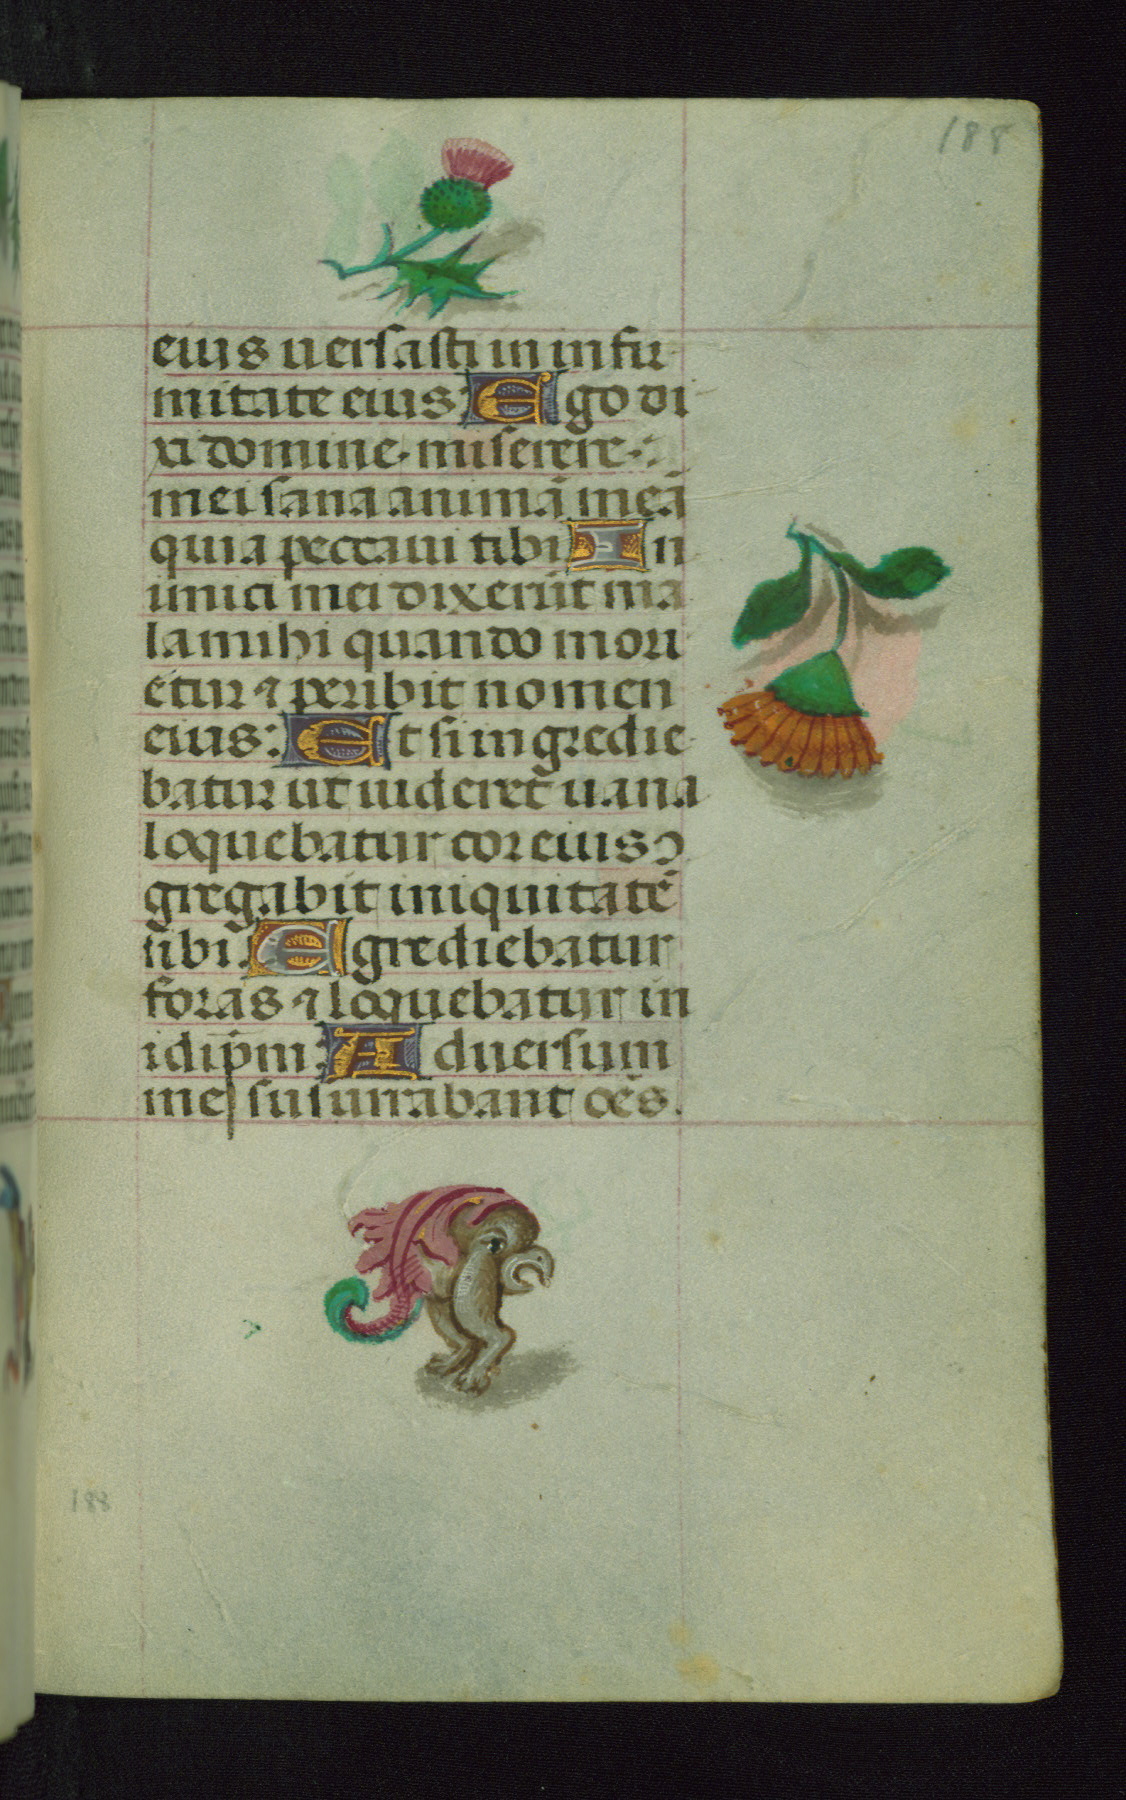 188
eius uersasti in infir
mitate eius: Ego di
xi domine miserere
mei sana animā meā
quia peccaui tibi In
imici mei dixerūt ma
la mihi quando mori
etur ⁊ peribit nomen
eius: Et si ingredie
batur ut uideret uana
loquebatur cor eius ɔ
gregabit iniquitatē
sibi. Egrediebatur
foras ⁊ loquebatur in
idip̄m: Aduersum
me susurrabant oēs.
188